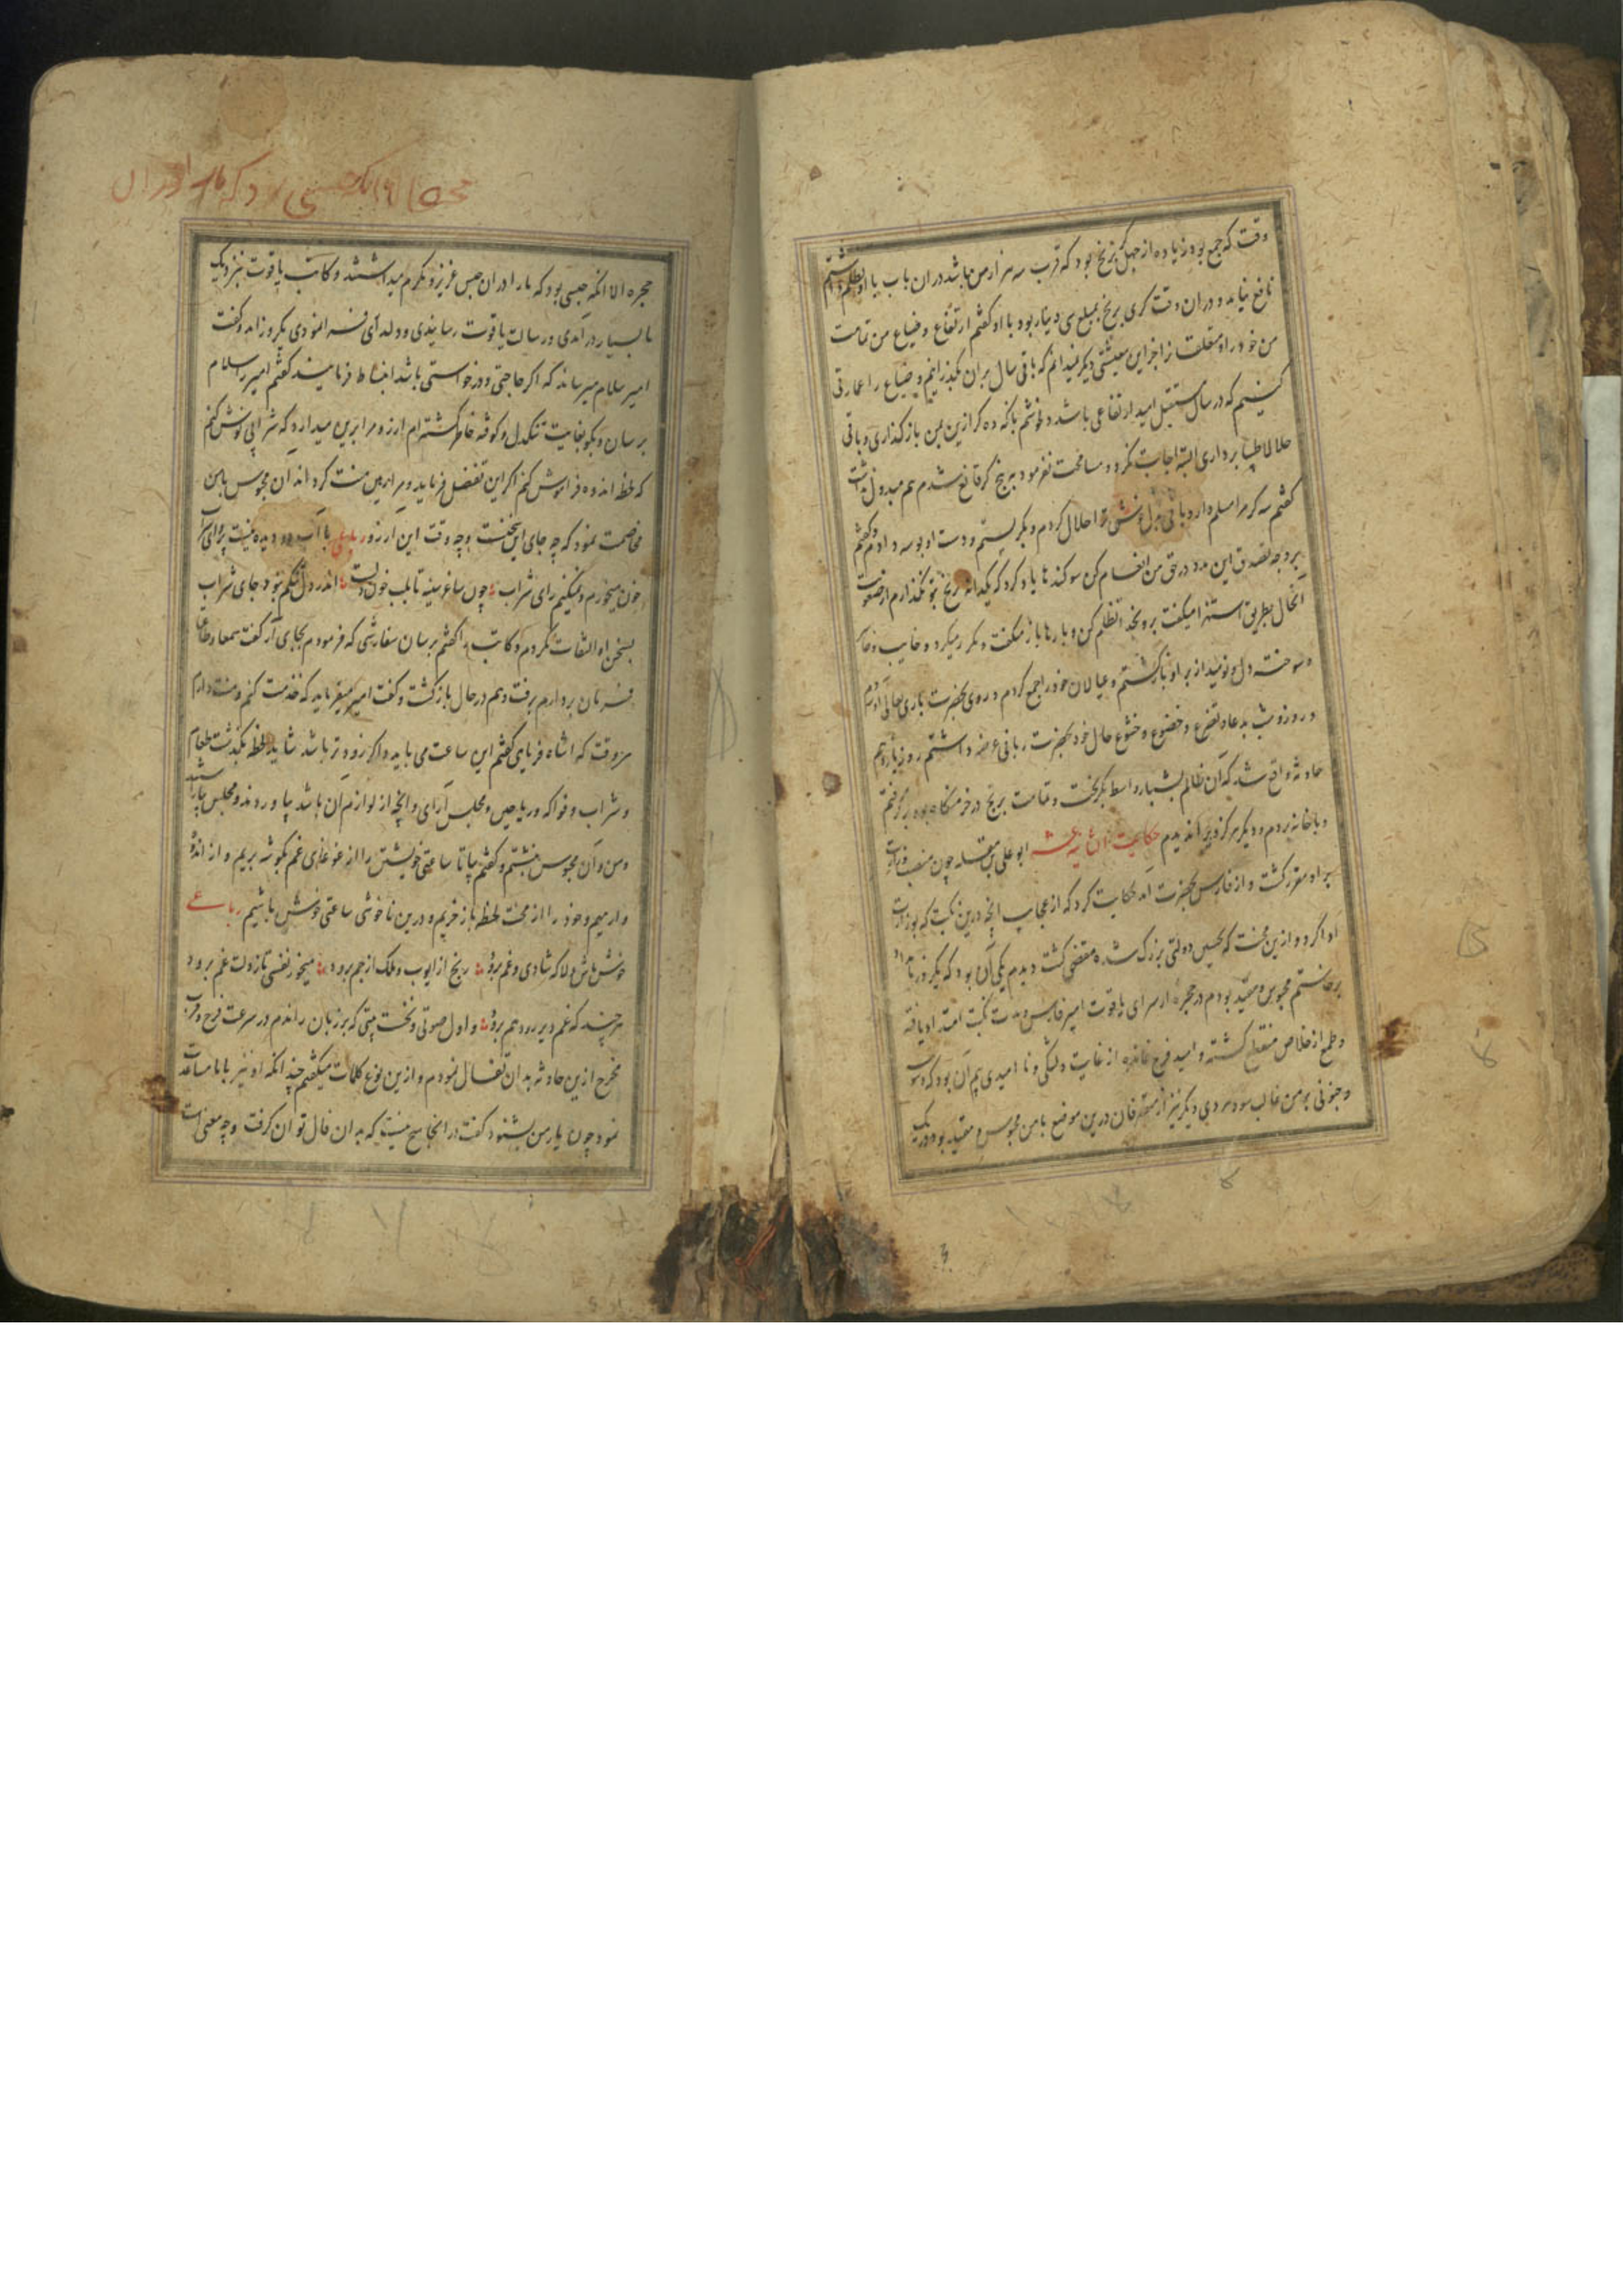 وقت که جمع بود زیاده از چهل کر برنج بود که قرب سه هزار من باشد در ان باب با او
نافع نیامد و در ان وقت کری برنج بمبلغ سی دینار بود با او کفتم ارتفاع و ضیاع من تمامت
من خود را و متعلقان را جز این معیشتی دیکر نمیدانم که باقی سال بران بکذرانیم و ضیاع را عمارتی
کنیم که در سال مستقبل امید ارتفاعی باشد و بانکه ده کر ازین بمن بازکذاری و باقی
حلالا طیبا برداری البته اجابت نکرد و مسامحت نفرمود به پنج کر قانع شدم هم مبذول نداشت
کفتم سه کر مرا مسلم دار و باقی ترا حلال کردم و بکریستم و دست او بوسه دادم و کفتم
بر وجه تصدق این مدد در حق من انعام کن سوکندها یاد کرد که یکدانه برنج بتو نکذارم
انحال بطریق استهزا میکفت برو بخدا تظلم کن و بارها باز میکفت و مکرر میکرد و خایب و خاسر
و سوخته دل و نومید از بر او بازکشتم و عیالان خود را جمع کردم و روی بحضرت باری تعالی آوردم
و روز و شب بدعا و تضرع و خضوع و خشوع حال خود بحضرت ربانی عرضه داشتم روز یازدهم
حادثه واقع شد که آن ظالم بشبار واسط بکریخت و تمامت برنج در خرمنکاه بود برکرفتم
و با خانه بردم و دیکر هرکز ویرا ندیدم حکایت الثانیه عشر ابو علی بن مقله چون منصب وزارت
بر او مقرر کشت و از فارس بحضرت آمد حکایت کرد که از عجایب انچه درین نکبت که بوزارت
او اکرد و ازین محنت که بچنین دولتی بزرک شده مقضی کشت دیدم یکی آن بود که یکروز بامداد
برخاستم محبوس و مقید بودم در حجره از سرای یاقوت امیر فارس و مدت نکبت امتداد یافته
و طمع از خلاص منقطع کشته و امید فرج نمانده از غایت دلتنکی و نا امیدی بیم آن بود که وسوسه
و جنونی بر من غالب شود مردی دیکر نیز از متصرفان درین موضع با من محبوس و مقید بود در یک
حجره الا انکه حبسی بود که ما را در ان حبس عزیز و مکرم میداشتند و کاتب یاقوت بنزدیک
ما بسیار در آمدی و رسالت یاقوت رسانیدی و دلداری فرا نمودی یکروز آمد و کفت
امیر سلام میرساند که اکر حاجتی و درخواستی باشد انبساط فرمایید کفتم امیر را سلام
برسان و بکو بغایت تنکدل و کوفته خاطر کشته‌ام ارزو مرا برین میدارد که شرابی نوش کنم
که لحظه اندوه فراموش کنم اکر این تفضل فرماید و مرا رهین منت کرداند آن محبوس با من
مخاصمت نمود که چه جای این سخنست و چه وقت این ارزو رباعی با آب دو دیده نیست پروای شراب
خون میخورم و نیکنم رای شراب چون ساغر سینه تا بلب خون دلست اندر دل تنکم نبود جای شراب
بسخن او التفات نکردم و کاتب را کفتم برسان سفارشی که فرمودم بجای آر کفت سمعا و طاعة
فرمان بردارم برفت و هم در حال بازکشت و کفت امیر میفرماید که خدمت کنم و منت دارم
هر وقت که اشاره فرمایی کفتم این ساعت می باید و اکر زودتر باشد شاید لحظه نکذشت طعام
و شراب و فواکه و ریاحین و مجلس آرای و انچه از لوازم ان باشد بیاوردند و مجلس بیاراستند
و من و آن محبوس بنشستیم و کفتم بیا تا ساعتی خویشتن را از غوغای غم بکوشه بریم و از اندوه
وارهیم و خود را از محنت لحظه باز خریم و درین ناخوشی ساعتی خوش باشیم رباعی
خوش باش دلا که شادی و غم برود رنج از ایوب و ملک از جم برود میخور نفسی تا ز دلت غم برود
هر چند که غم دیر رود هم برود و اول صوتی و نخست بیتی که بر زبان راندم در سرعت فرج و قرب
مخرج ازین حادثه بدان تفال نمودم و ازین نوع کلمات میکفتم چندانکه او نیز با ما مساعدت
نمود چون یار من بشنود کفت در اینجا هیچ نیست که به ان فال توان کرفت و چه معنی است